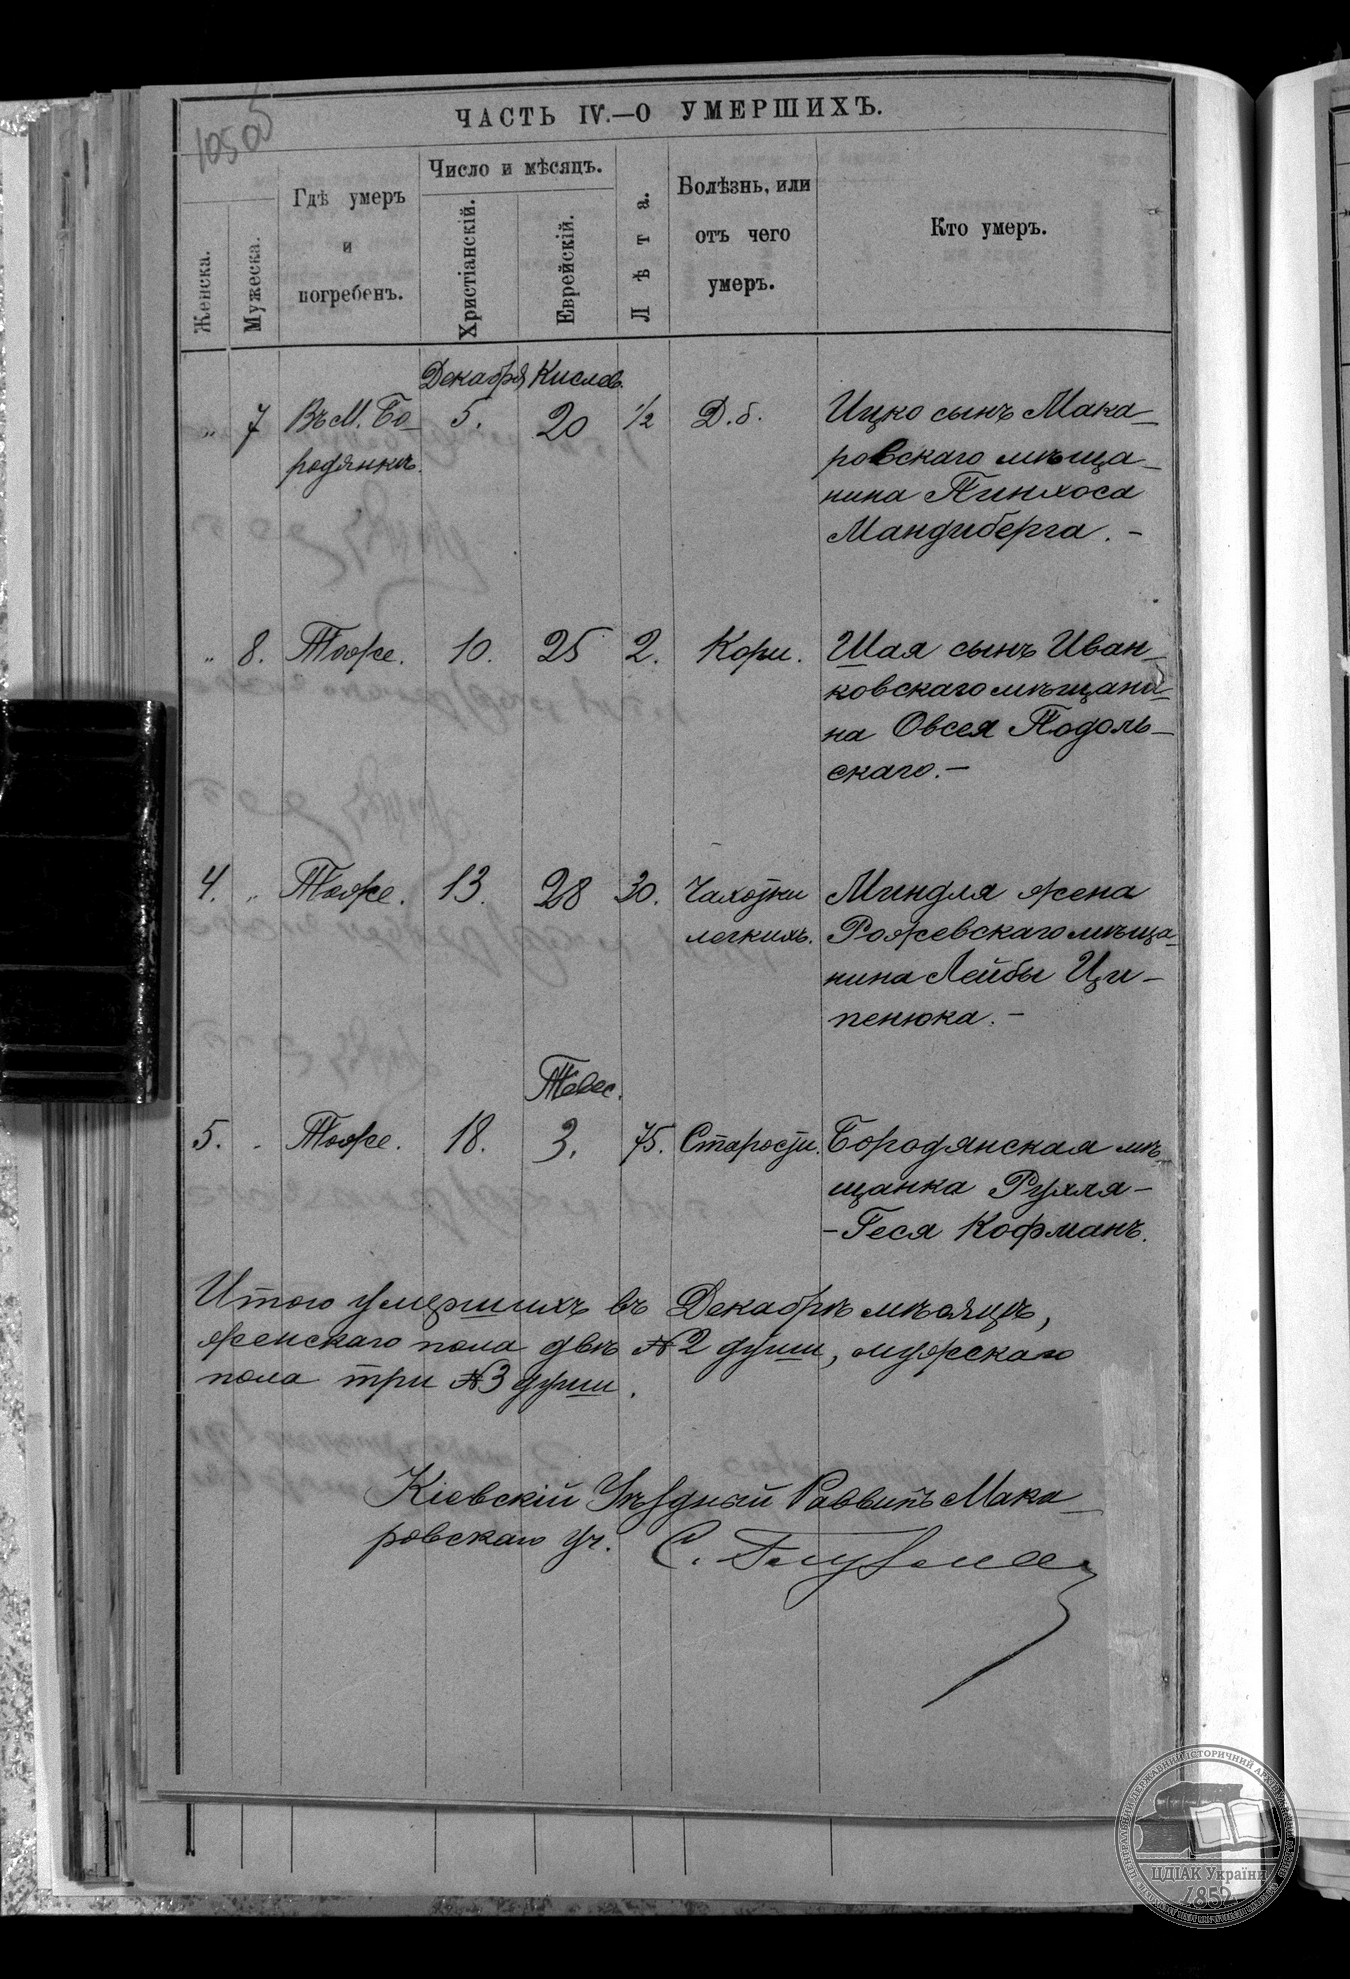 1050
5
ЧАСТЬ IV.—О УМЕРШИХЪ.
Женска.
Мужеска.
Гдѣ умеръ
и
погребенъ.
Число и мѣсяцъ.
Христіанскій.
Еврейскій.
Лѣта.
Болѣзнь, или
отъ чего
умеръ.
Кто умеръ.
Декабря Кислев.
„ 7 Въ М. Бо- 5. 20 1/2 Д.б. Ицко сынъ Мака-
родянкѣ. ровскаго мѣща-
нина Пинхоса
Мандиберга.—
„ 8. Тоже. 10. 25 2. Кори. Шая сынъ Иван-
ковскаго мѣщани-
на Овсея Подоль-
скаго.—
4. „ Тоже. 13. 28 30. Чахотки Миндля жена
легкихъ. Рожевскаго мѣща-
нина Лейбы Ци-
пенюка.—
Тевес.
5. „ Тоже. 18. 3. 75. Старости. Бородянская мѣ-
щанка Рухля-
-Геся Кофманъ.
Итого умершихъ въ Декабрѣ мѣсяцѣ,
женскаго пола двѣ №2 души, мужскаго
пола три №3 души.
Кіевскій Уѣздный Раввинъ Мака-
ровскаго уч. С.
ЦЕНТРАЛЬНИЙ ДЕРЖАВНИЙ ІСТОРИЧНИЙ АРХІВ УКРАЇНИ
ЦДІАК України
1852